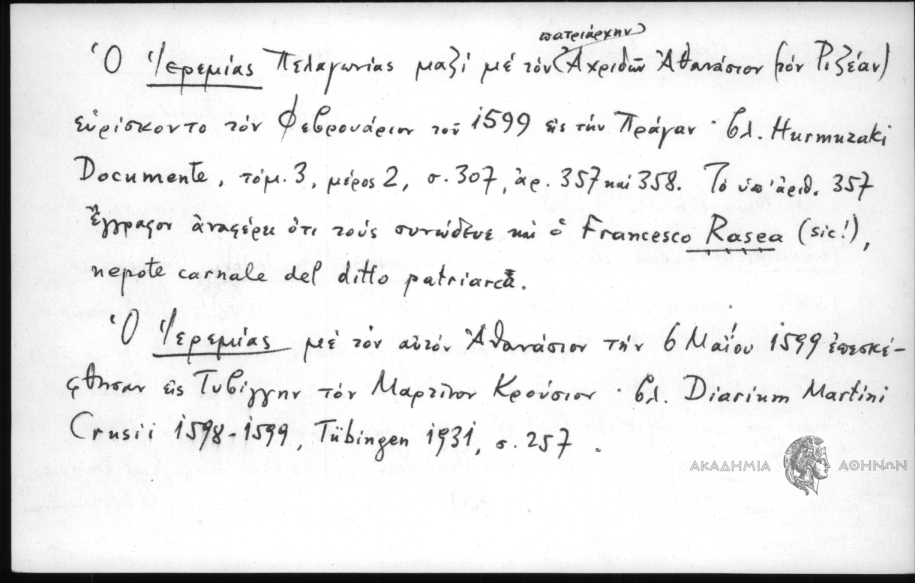 πατριάρχην
Ὁ Ἱερεμίας Πελαγωνίας μαζί μέ τόν Ἀχριδῶν Ἀθανάσιον (τόν Ριζέαν)
εὑρίσκοντο τόν Φεβρουάριον τοῦ 1599 εἰς τήν Πράγαν · βλ. Hurmuzaki
Documente, τόμ. 3, μέρος 2, σ. 307, ἀρ. 357 καί 358. Τό ὑπ' ἀριθ. 357
ἔγγραφον ἀναφέρει ὅτι τούς συνώδευε καί ὁ Francesco Rasea (sic!),
nepote carnale del ditto patriarca.
Ὁ Ἱερεμίας μέ τόν αὐτόν Ἀθανάσιον τήν 6 Μαΐου 1599 ἐπεσκέ-
φθησαν εἰς Τυβίγγην τόν Μαρτῖνον Κρούσιον · βλ. Diarium Martini
Crusii 1598-1599, Tübingen 1931, σ. 257.
ΑΚΑΔΗΜΙΑ ΑΘΗΝΩΝ